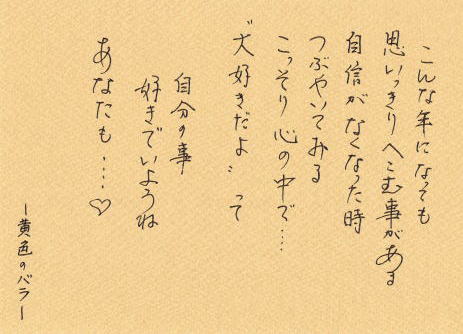 こんな年になっても
思いっきりへこむ事がある
自信がなくなった時
つぶやいてみる
こっそり心の中で‥‥
"大好きだよ" って
自分の事
好きでいようね
あなたも‥‥♡
ー黄色のバラー